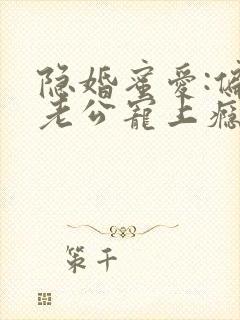 隐婚蜜爱:偏
老公宠上瘾
策千